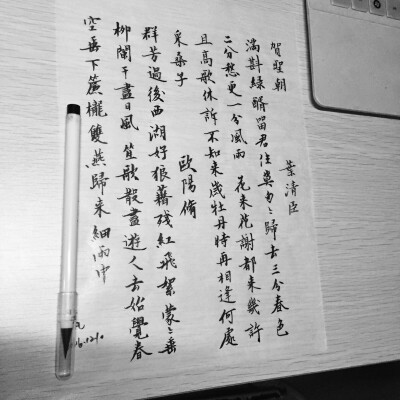 賀聖朝 葉清臣
滿斟綠醑留君住莫匆〻歸去三分春色
二分愁更一分風雨 花来花謝都来幾許
且高歌休訴不知来歲牡丹時再相逢何處
采桑子 歐陽脩
群芳過後西湖好狼藉殘紅飛絮蒙〻垂
柳闌干盡日風 笙歌散盡遊人去始覺春
空垂下簾櫳雙燕歸来細雨中